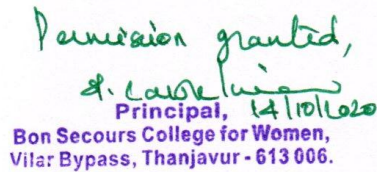 Permission granted,
Principal, 14/10/2020
Bon Secours College for Women,
Vilar Bypass, Thanjavur - 613 006.